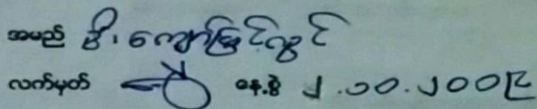 အမည် ဦး ကျော်မြင့်လွင်
လက်မှတ် နေ့စွဲ ၂.၁၀.၂၀၀၉